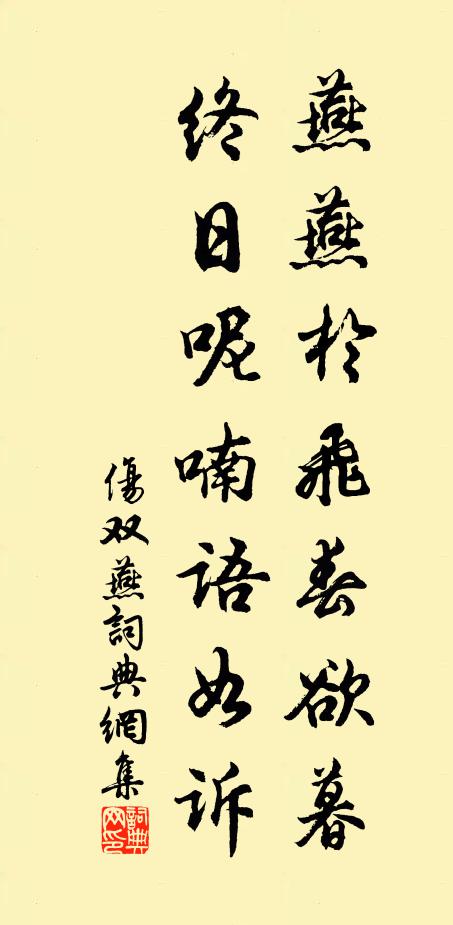 燕燕於飛春欲暮
終日呢喃語如訴
傷双燕詞典網集
詞典网印